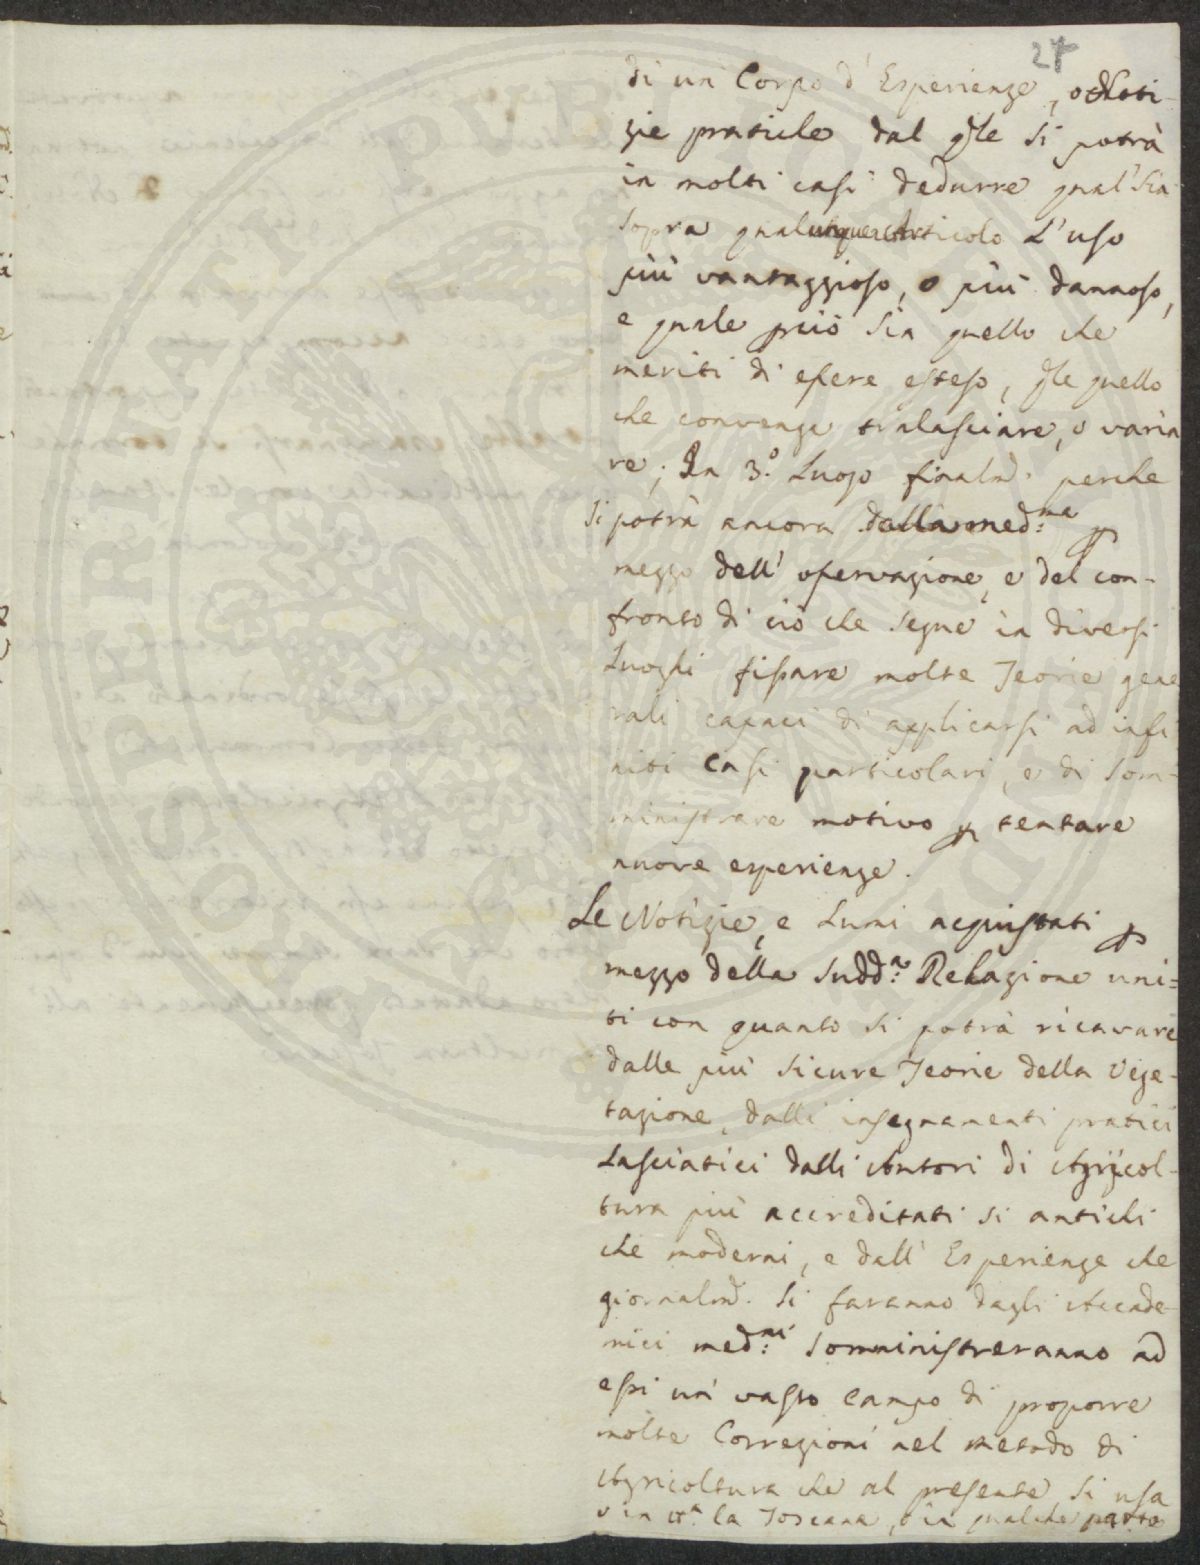 27
di un Corpo d'Esperienze, o Noti-
zie pratiche dal q͠le si potrà
in molti casi dedurre qual'sia
sopra qualunque Articolo L'uso
più vantaggioso, o più dannoso,
e quale più sia quello che
meriti di essere esteso, q͠le quello
che convenga tralasciare, o varia
re; In 3.º Luogo finalm͠. perche
si potrà ancora dalla med:ma p
mezzo dell'osservazione, e del con-
fronto di ciò che segue in diversi
Luoghi fissare molte Teorie gene
rali capaci di applicarsi ad infi
niti Casi particolari, e di som-
ministrare motivo p tentare
nuove esperienze.
Le Notizie, e Lumi acquistati p
mezzo della sudd:a Relazione uni=
ti con quanto si potrà ricavare
dalle più sicure Teorie della Vege-
tazione, dalli insegnamenti pratici
Lasciatici dalli Autori di Agricol-
tura più accreditati si antichi
che moderni, e dall'Esperienze che
giornalm͠. si faranno dagli Accade-
mici med:mi somministreranno ad
essi un vasto Campo di proporre
molte Correzioni nel metodo di
Agricoltura che al presente si usa
o in tt:a la Toscana, o in qualche parte
SPIRITATI PVBLICAE